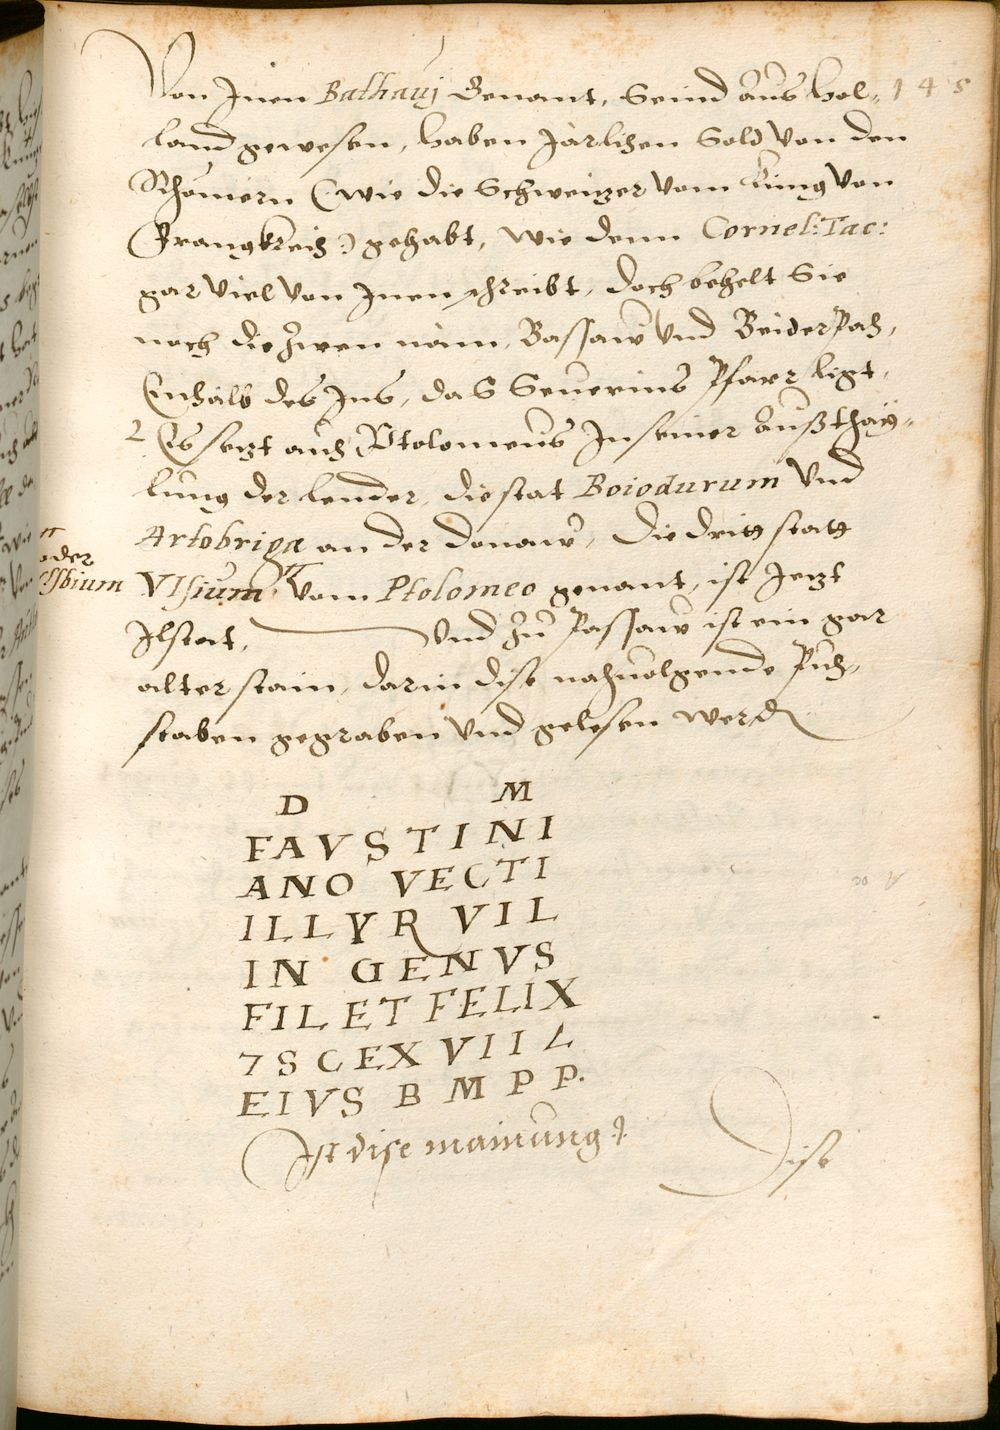 Von Inen Bathauj Genant, Seind aus Hol-
145
land gewesen, haben Järlichen Sold von den
Rhömern (wie die Schweitzer vom König von
Franckreich:) gehabt, wie denn Cornel: Tac:
gar viel von Inen schreibt, doch behelt Sie
noch die zwen nam, Bassaw und Beiderpach,
Enhalb des Ins, da S Seuerins Pfarr ligt,
2 Es setzt auch Ptolomeus In seiner Außthay-
lung der lender, die stat Boiodurum Und
Artobriga an der donaw, die dritt statt
oder
Usbium
VIsium vom Ptolomeo genant, ist Jetzt
Ilstat, Und zu Passaw ist ein gar
alter stain, darin dise nachuolgende Puch-
staben gegraben Und gelesen werden
D M
FAVSTINI
ANO VECTI
ILLYR VIL
IN GENVS
FIL ET FELIX
7 S C EX VIII L
EIVS B M P P.
Ist dise mainung
Dise